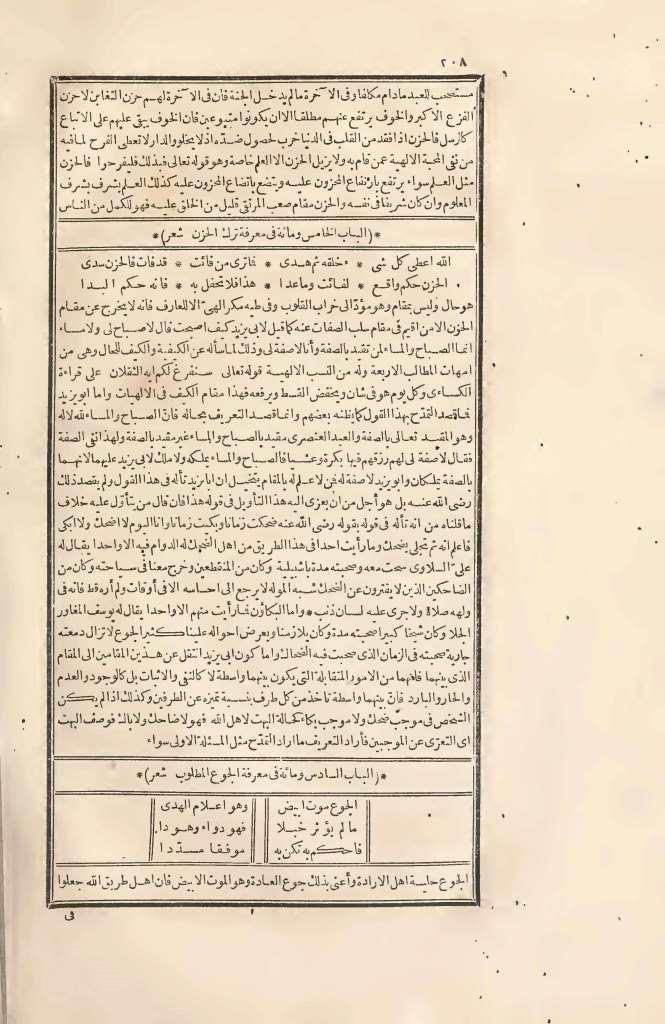 ٢٠٨
مستصحب للعبد مادام مكلفا وفى الآخرة مالم يدخل الجنة فان فى الآخرة لهم حزن التغابن لا حزن
الفزع الاكبر والخوف يرتفع عنهم مطلقا الا ان يكونوا متبوعين فان الخوف يبقى عليهم على الاتباع
كالرسل فالحزن اذا فقد من القلب فى الدنيا خرب لحصول ضده اذ لا يخلو والدار لا تعطى الفرح لما فيه
من نفى المحبة الالهية عمن قام به ولا يزيل الحزن الا العلم خاصة وهو قوله تعالى فبذلك فليفرحوا فالحزن
مثل العلم سواء يرتفع بارتفاع المحزون عليه ويتضع باتضاع المحزون عليه كذلك العلم يشرف بشرف
المعلوم وان كان شريفا فى نفسه والحزن مقام صعب المرتقى قليل من الخلق عليه فهو للكمل من الناس
*(الباب الخامس ومائة فى معرفة ترك الحزن شعر)*
الله اعطى كل شى * خلقه ثم هدى * فماترى من فائت * قدفات فالحزن سدى
الحزن حكم واقع * لفائت وما عدا * هذا فلا تحفل به * فانه حكم البدا
هو حال وليس بمقام وهو مؤد الى خراب القلوب وفى طيه مكر الهى الا للعارف فانه لا يخرج عن مقام
الحزن الا من اقيم فى مقام سلب الصفات عنه كما قيل لابى يزيد كيف اصبحت قال لا صباح لى ولا مساء
انما الصباح والمساء لمن تقيد بالصفة وأنا لا صفة لى وذلك لما سأله عن الكيفية والكيف للحال وهى من
امهات المطالب الاربعة وله من النسب الالهية قوله تعالى سنفرغ لكم ايه الثقلان على قراءة
الكسائى وكل يوم هو فى شان ويخفض القسط ويرفعه فهذا مقام الكيف فى الالهيات واما ابو يزيد
فما قصد التمدح بهذا القول كما يظنه بعضهم وانما قصد التعريف بحاله فان الصباح والمساء لله لا له
وهو المقيد تعالى بالصفة والعبد العنصرى مقيد بالصباح والمساء غير مقيد بالصفة ولهذا نفى الصفة
فقال لا صفة لى لهم رزقهم فيها بكرة وعشيا فالصباح والمساء يملكه ولا ملك لابى يزيد عليهما لانهما
بالصفة يملكان وابو يزيد لا صفة له فمن لا علم له بالمقام يتخيل ان ابا يزيد تأله فى هذا القول ولم يقصد ذلك
رضى الله عنه بل هو أجل من ان يعزى اليه هذا التأويل فى قوله هذا فان قال من يتأول عليه خلاف
ما قلناه من انه تأله فى قوله بقوله رضى الله عنه ضحكت زمانا وبكيت زمانا وانا اليوم لا اضحك ولا ابكى
فاعلم انه ثم تجلى يضحك وما رأيت احدا فى هذا الطريق من اهل الضحك له الدوام فيه الا واحدا يقال له
على السلاوى سحت معه وصحبته مدة باشبيلية وكان من المنقطعين وخرج معنا فى سياحته وكان من
الضاحكين الذين لا يفترون عن الضحك شبه المولّه لا يرجع الى احساسه الا فى أوقات ولم أره قط فاته فى
ولهه صلاة ولا جرى عليه لسان ذنب * واما البكاؤن فما رأيت منهم الا واحدا يقال له يوسف المغاور
الجلا وكان شيخا كبيرا صحبته مدة وكان يلازمنا ويعرض احواله علينا كثير الجوع لا تزال دمعته
جارية صحبته فى الزمان الذى صحبت فيه الضحاك واما كون ابى يزيد انتقل عن هذين المقامين الى المقام
الذى بينهما فانهما من الامور المتقابلة التى يكون بينهما واسطة لا كالنفى والاثبات بل كالوجود والعدم
والحار والبارد فان بينهما واسطة تاخذ من كل طرف بنسبة تميزه عن الطرفين وكذلك اذا لم يكن
الشخص فى موجب ضحك ولا موجب بكاء كحالة البهت لاهل الله فهو لا ضاحك ولا باك فوصف البهت
اى التعرى عن الموجبين فأراد التعريف ما اراد التمدح مثل المسئلة الاولى سواء
*(الباب السادس ومائة فى معرفة الجوع المطلوب شعر)*
الجوع موت ابيض وهو اعلام الهدى
مالم يؤثر خبلا فهو دواء وهو دا
فاحكم به تكن به موفقا مسددا
الجوع حلية اهل الارادة وأعنى بذلك جوع العادة وهو الموت الابيض فان اهل طريق الله جعلوا
فى